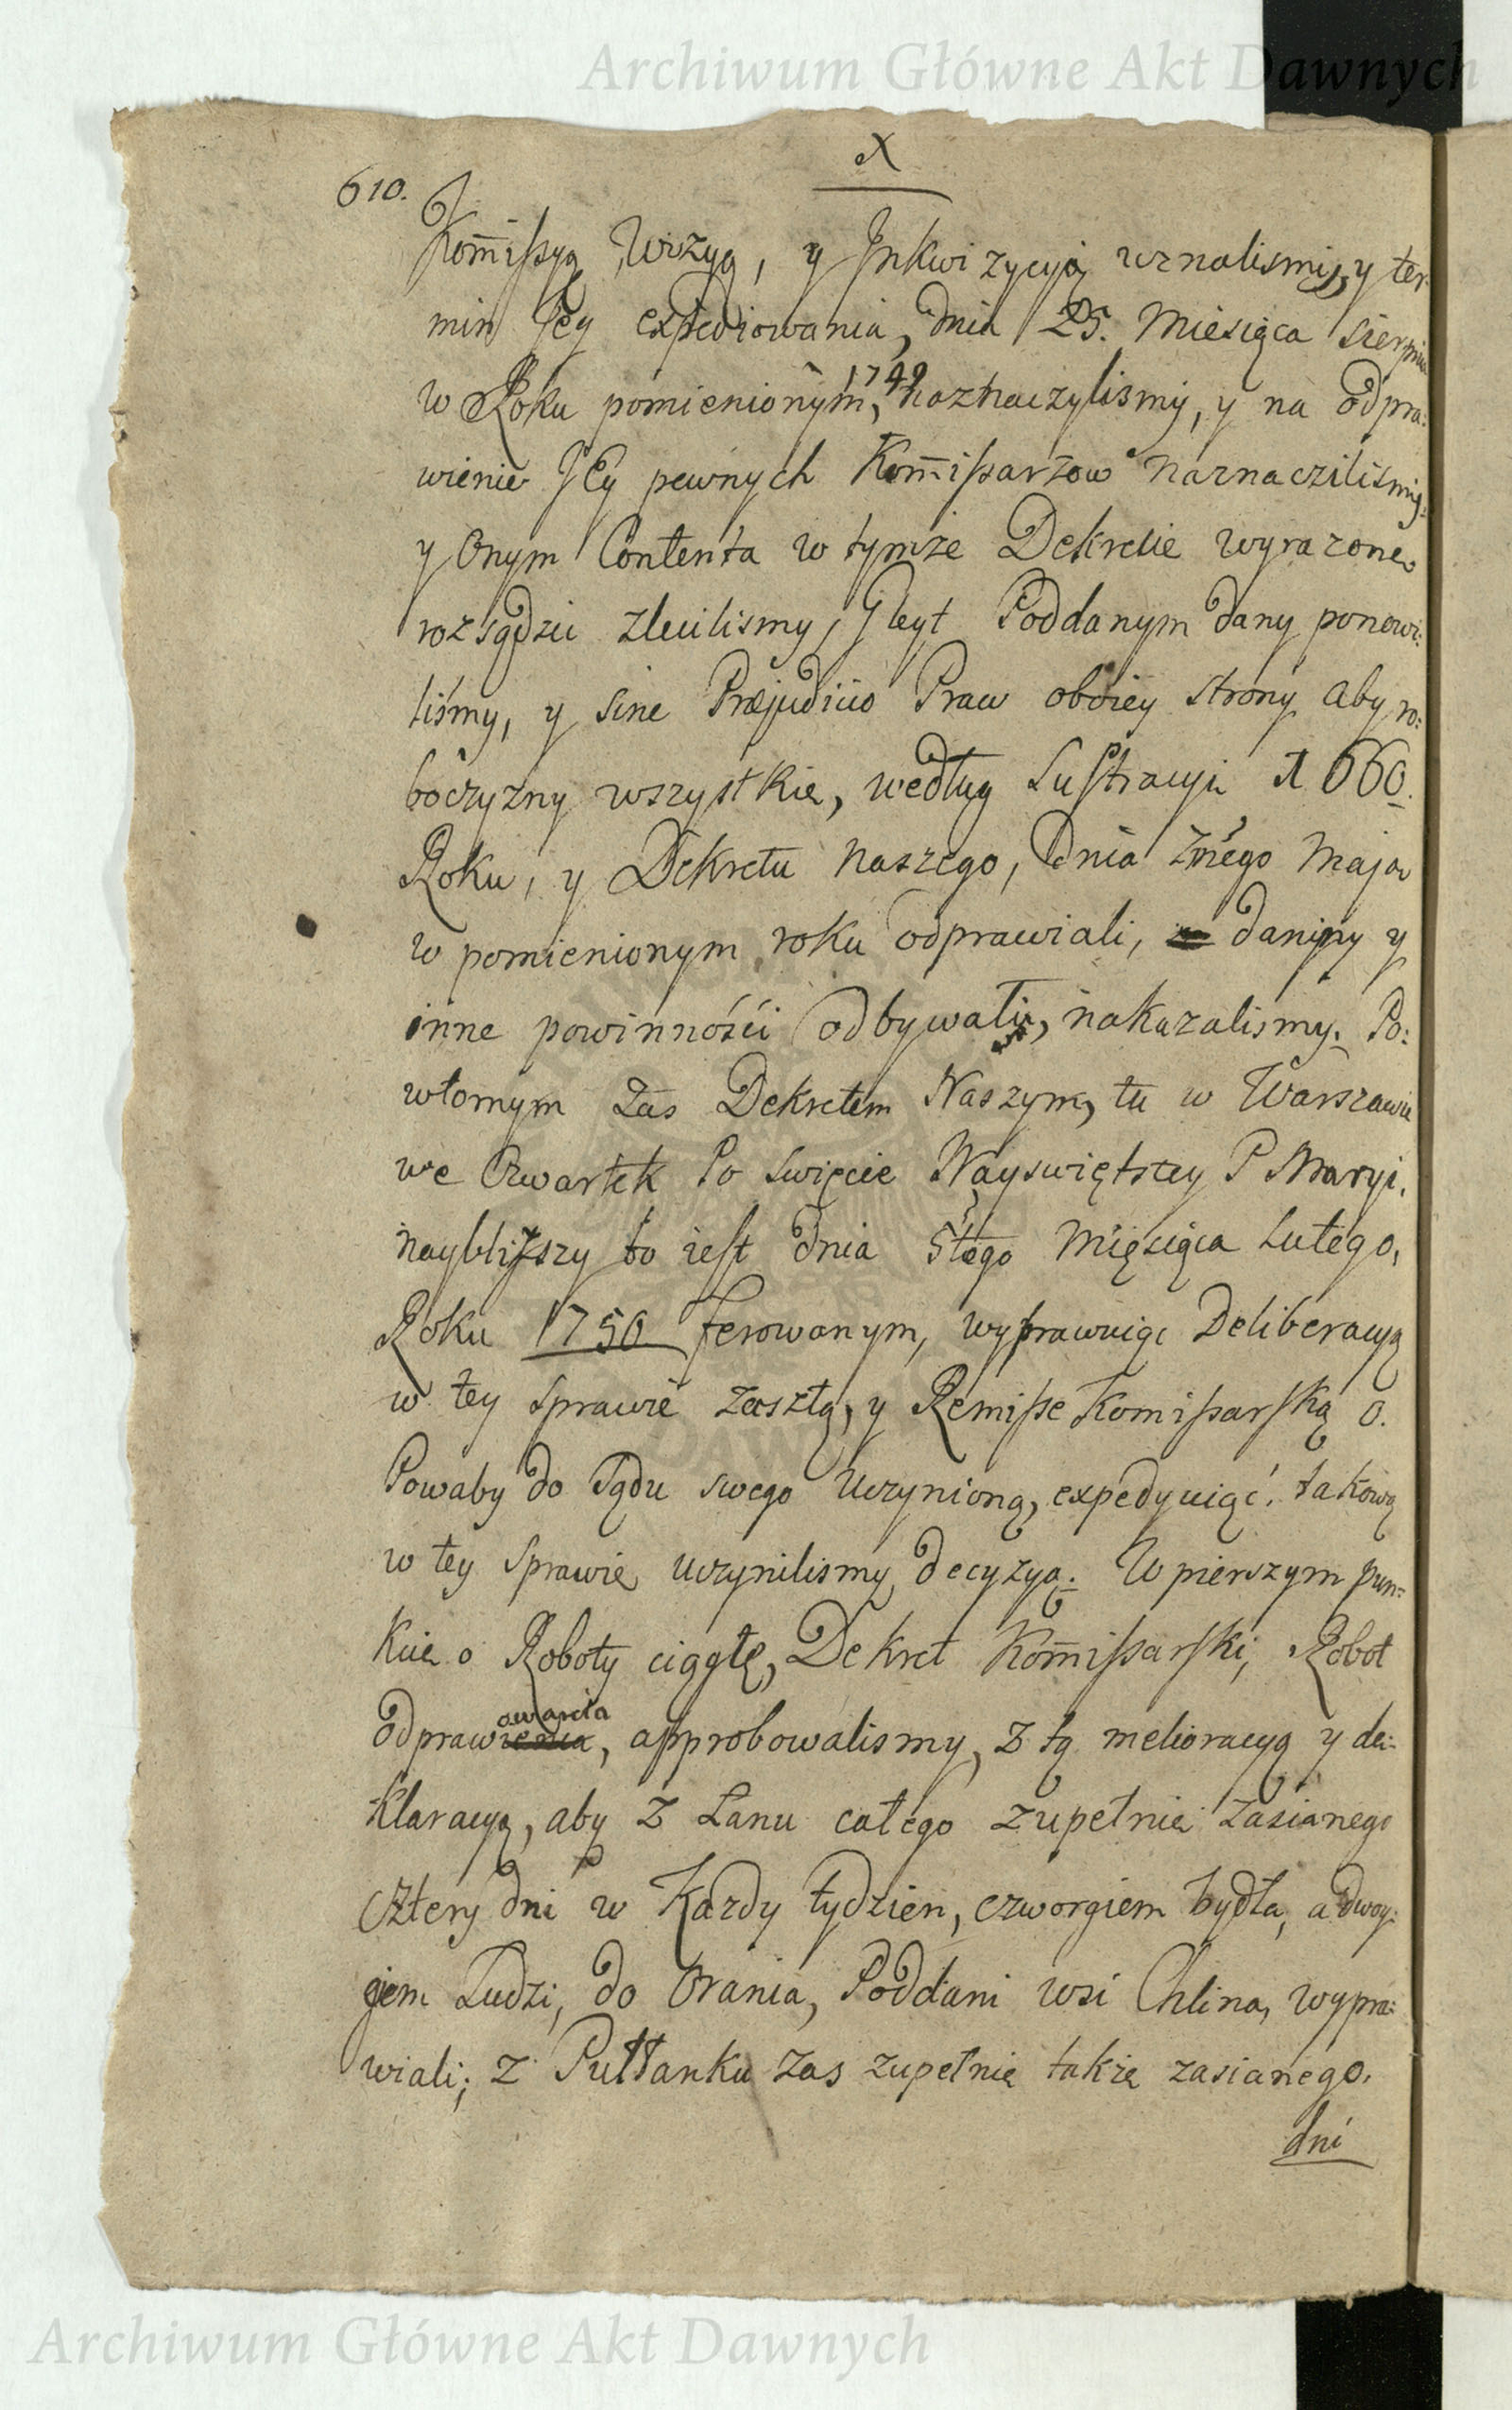 Archiwum Główne Akt Dawnych
X
610.
Kom̄ißyą Wizyą, y Jnkwizycyą uznalismy, y ter-
min Jey expediowania, dnia 25. Miesiąca Sierpnia
w Roku pomienionym, 1749 naznaczylismy, y na odpra:
wienie JEy pewnych Kom̄ißarzow naznaczilismy.
y Onym Contenta w tymże Dekrecie wyrazone
rozsądzic zlecilismy, Gleyt Poddanym dany ponowi:
liśmy, y sine Præjudicio Praw oboiey strony aby ro:
boćzyzny wszystkie, według Lustracyi 1660.
Roku, y Dekretu Naszego, Dnia 2n̄ego Maja
w pomienionym roku odprawiali, daniny y
inne powinnośći odbywali, nakazalismy. Po:
wtornym zas Dekretem Naszym, tu w Warszawie
we Czwartek Po Swięcie Nayswiętszey P Maryi,
naybliższy to iest dnia 5tego Mięsiąca Lutego,
Roku 1750 ferowanym, wyprawuiąc Deliberacyą
w tey Sprawie zaszłą, y Remiße Komißarską o.
Powaby do Sądu swego Uczynioną, expedyuiąć. takową
w tey Sprawie uczynilismy decyzyą. W pierszym pun-
kcie o Roboty ciągłe, Dekret Kom̄ißarski, Robot
owania
odprawienia, approbowalismy, z tą melioracyą y de-
klaracyą, aby z Łanu całego zupełnie zasianego
cztery dni w Każdy tydzien, czworgiem bydła, a dwoy:
giem Ludzi, do Orania, Poddani wsi Chlina, wypra:
wiali; z Pułłanku zas zupełnie takze zasianego.
dni
Archiwum Główne Akt Dawnych